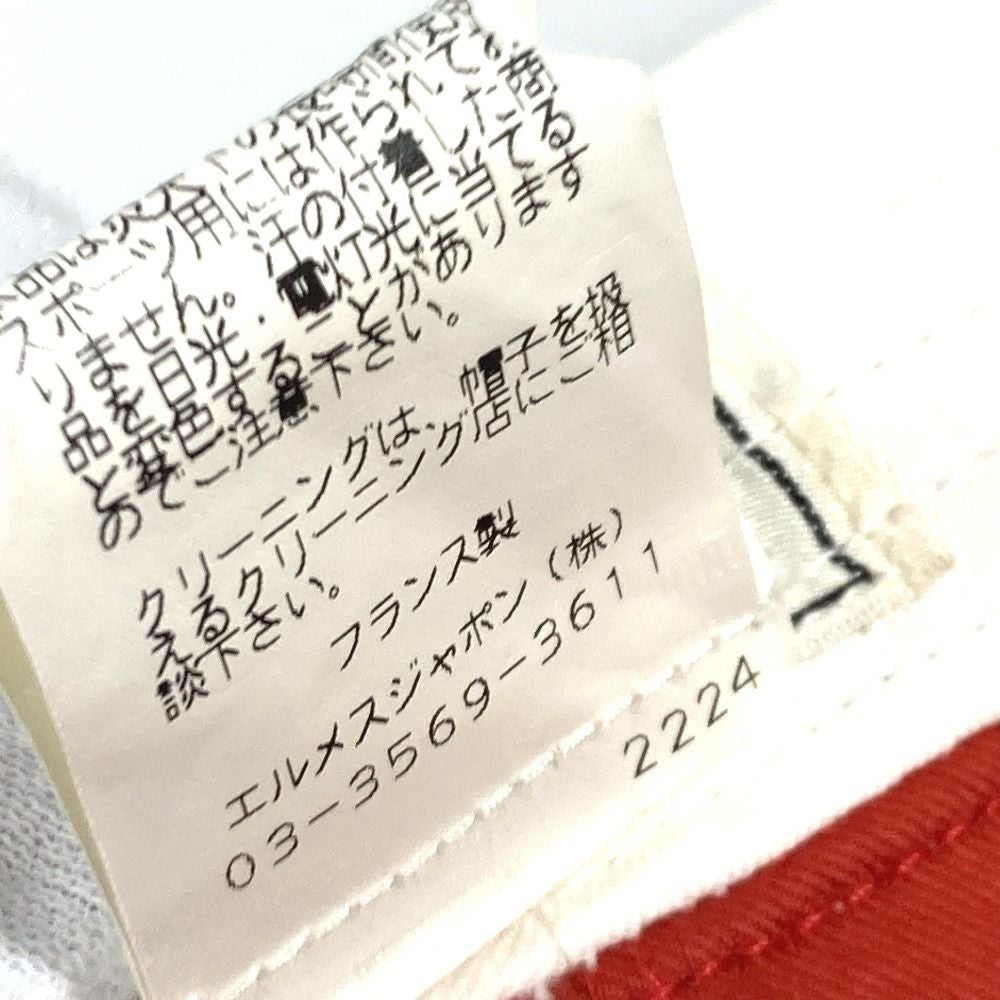 品は炎天下の長時間使
スポーツ用には作られてい
ません。汗の付着した商
品を日光・電灯光に当てる
と変色することがあります
のでご注意下さい。
クリーニングは、帽子を扱
えるクリーニング店にご相
談下さい。
フランス製
エルメスジャポン(株)
03-3569-3611
2224